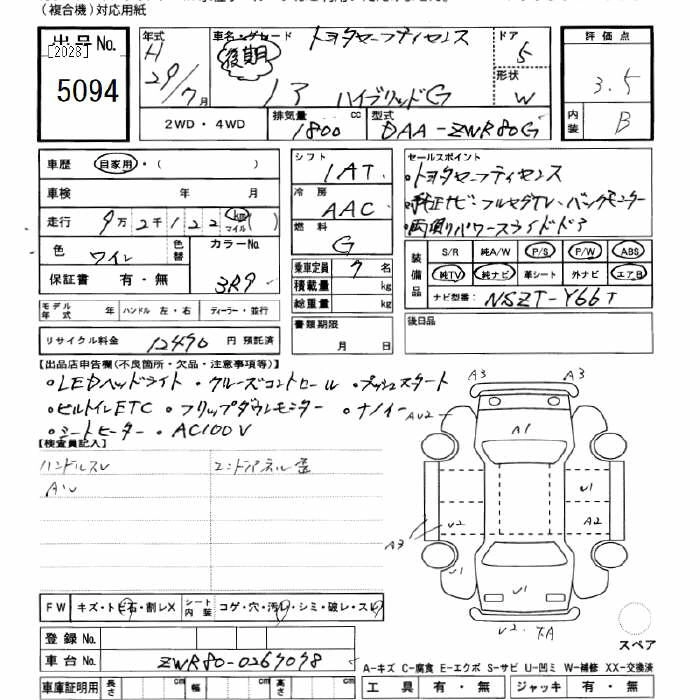 (複合機)対応用紙
出品No.
[2028]
5094
年式
H
29/7月
車名・グレード
後期
トヨタセーフティセンス
17 ハイブリッドG
ドア
5
形状
W
2WD・4WD
排気量
1800 cc
型式
DAA-ZWR80G
評価点
3.5
内装
B
車歴 自家用・( )
車検 年 月
走行 9万2千122 km マイル( )
色 ワイレ
色替
カラーNo.
3R9
保証書 有・無
モデル年式 年 ハンドル 左・右 ディーラー・並行
リサイクル料金 12490 円 預託済
シフト
IAT.
冷房
AAC
燃料
G
乗車定員 7 名
積載量 kg
総重量 kg
書類期限
月 日
セールスポイント
・トヨタセーフティセンス
・純正ナビ・フルセグTV・バックモニター
・両側パワースライドドア
装備品
S/R 純A/W P/S P/W ABS
純TV 純ナビ 革シート 外ナビ エアB
ナビ型番: NSZT-Y66T
後日品
【出品店申告欄(不良箇所・欠品・注意事項等)】
・LEDヘッドライト ・クルーズコントロール ・プッシュスタート
・ビルトインETC ・フリップダウンモニター ・ナノイー
・シートヒーター ・AC100V
【検査員記入】
ハンドルスレ
エンドパネル歪
A・U
A3 A3
AU2
A1
U1
U2 A2
A3
U1
U1
U2 XA
スペア
FW キズ・トビ石・割レX シート内装 コゲ・穴・汚レ・シミ・破レ・スレ
登録No.
車台No. ZWR80-0267098
車庫証明用 長さ cm 幅 cm 高さ cm
A-キズ C-腐食 E-エクボ S-サビ U-凹ミ W-補修 XX-交換済
工具 有・無 ジャッキ 有・無